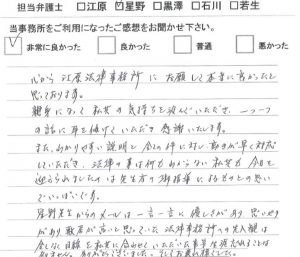 担当弁護士 □江原 ☑星野 □黒澤 □石川 □若生
当事務所をご利用になったご感想をお聞かせ下さい。
☑非常に良かった □良かった □普通 □悪かった
心から江原法律事務所にお願いして本当に良かったと
思っております。
親身になって私共の気持ちを汲んでいただき、一つ一つ
の話に耳を傾けていただき感謝いたします。
また、わかりやすい説明と 対し動きが早く対応
していただき、法律の事は何もわからない私共が今日を
迎えられましたのは先生方の御指導によるものとの思い
でいっぱいです。
星野先生からのメールは一言一言に優しさがあり思いやり
があり敬意が
目線を私共に合わせていただいた事を忘れることは
ありません。ありがとうございました。